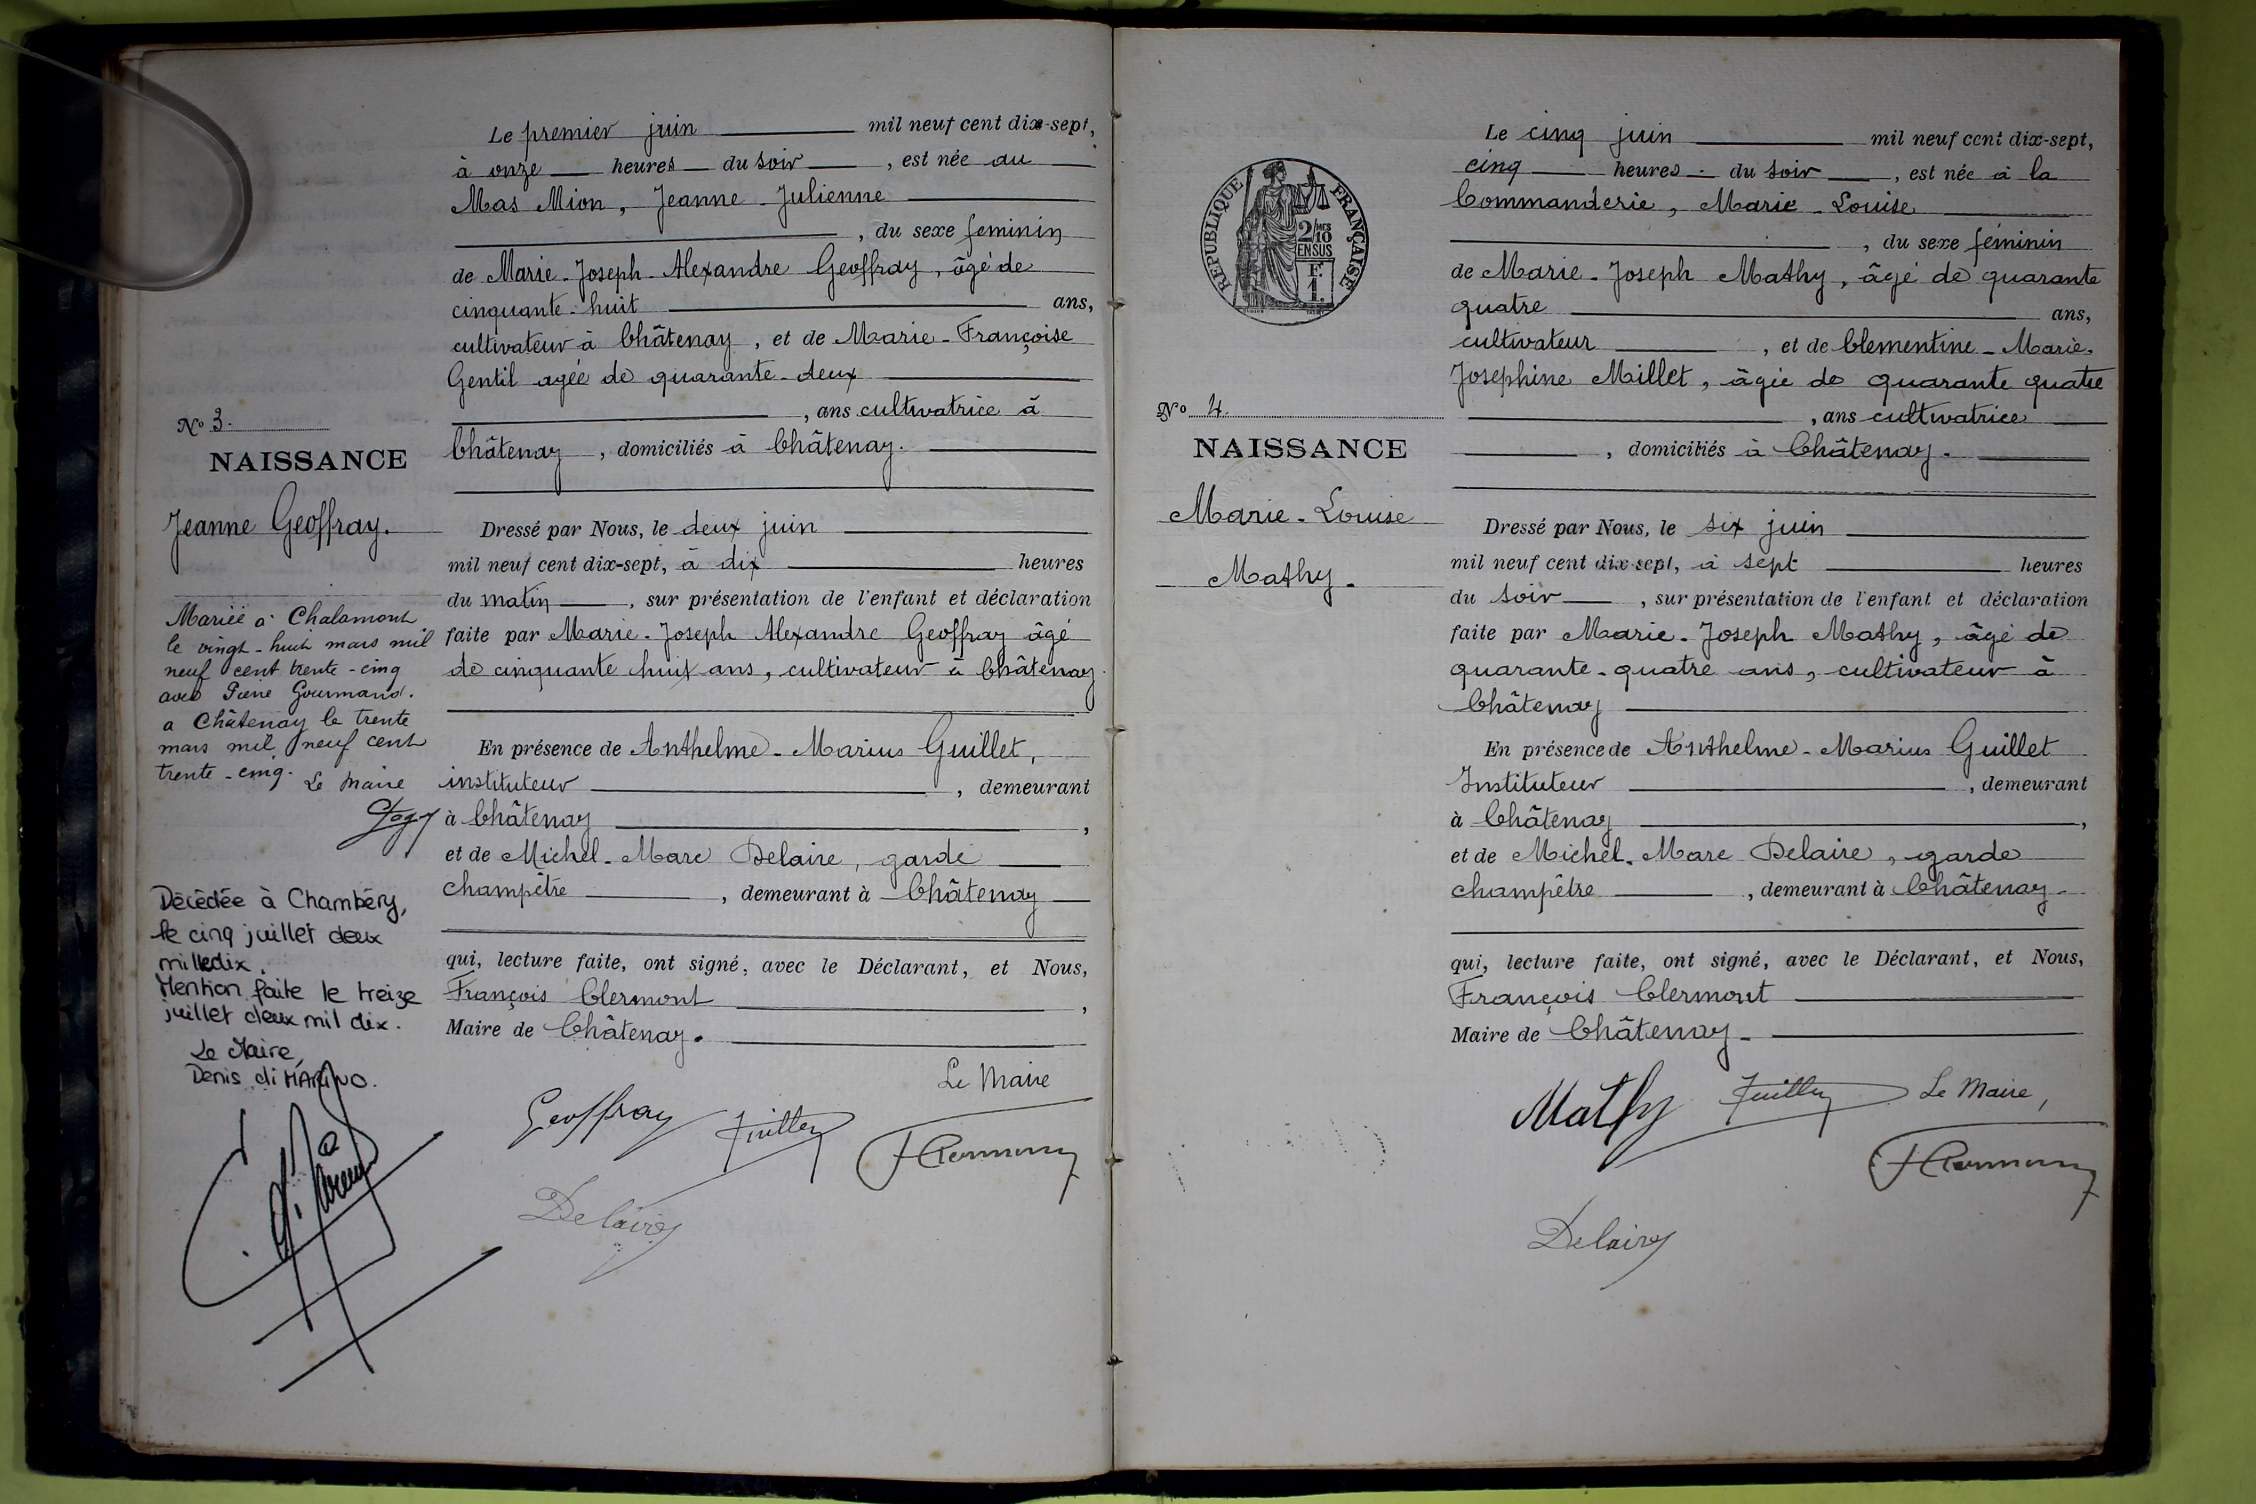 Le premier juin mil neuf cent dix-sept,
à onze heures du soir, est née au
Mas Mion, Jeanne-Julienne
, du sexe feminin
de Marie-Joseph-Alexandre Geoffray, âgé de
cinquante-huit ans,
cultivateur à Châtenay, et de Marie-Françoise
Gentil agée de quarante-deux
, ans cultivatrice à
Châtenay, domiciliés à Châtenay.
Dressé par Nous, le deux juin
mil neuf cent dix-sept, à dix heures
du matin, sur présentation de l'enfant et déclaration
faite par Marie-Joseph Alexandre Geoffray âgé
de cinquante huit ans, cultivateur à Châtenay
En présence de Anthelme-Marius Guillet,
instituteur, demeurant
à Châtenay,
et de Michel-Marc Delaire, garde
champêtre, demeurant à Châtenay
qui, lecture faite, ont signé, avec le Déclarant, et Nous,
François Clermont,
Maire de Châtenay.
Le Maire
Geoffray
Delaire
No 3.
NAISSANCE
Jeanne Geoffray.
Mariée à Chalamont
le vingt-huit mars mil
neuf cent trente-cinq
avec Pierre Gourmand.
a Châtenay le trente
mars mil neuf cent
trente-cinq.
Le Maire
Décédée à Chambéry,
le cinq juillet deux
mille dix.
Mention faite le treize
juillet deux mil dix.
Le Maire,
Denis di MARINO.
REPUBLIQUE FRANÇAISE
2/10
EN SUS
F.
1.
No 4.
NAISSANCE
Marie-Louise
Mathy-
Le cinq juin mil neuf cent dix-sept,
cinq heures du soir, est née à la
Commanderie, Marie-Louise
, du sexe féminin
de Marie-Joseph Mathy, âgé de quarante
quatre ans,
cultivateur, et de Clementine-Marie-
Josephine Millet, âgée de quarante quatre
, ans cultivatrice
, domiciliés à Châtenay.
Dressé par Nous, le six juin
mil neuf cent dix-sept, à sept heures
du soir, sur présentation de l'enfant et déclaration
faite par Marie-Joseph Mathy, âgé de
quarante-quatre ans, cultivateur à
Châtenay
En présence de Anthelme-Marius Guillet
Instituteur, demeurant
à Châtenay,
et de Michel-Marc Delaire, garde
champêtre, demeurant à Châtenay-
qui, lecture faite, ont signé, avec le Déclarant, et Nous,
François Clermont
Maire de Châtenay-
Mathy
Le Maire,
Delaire